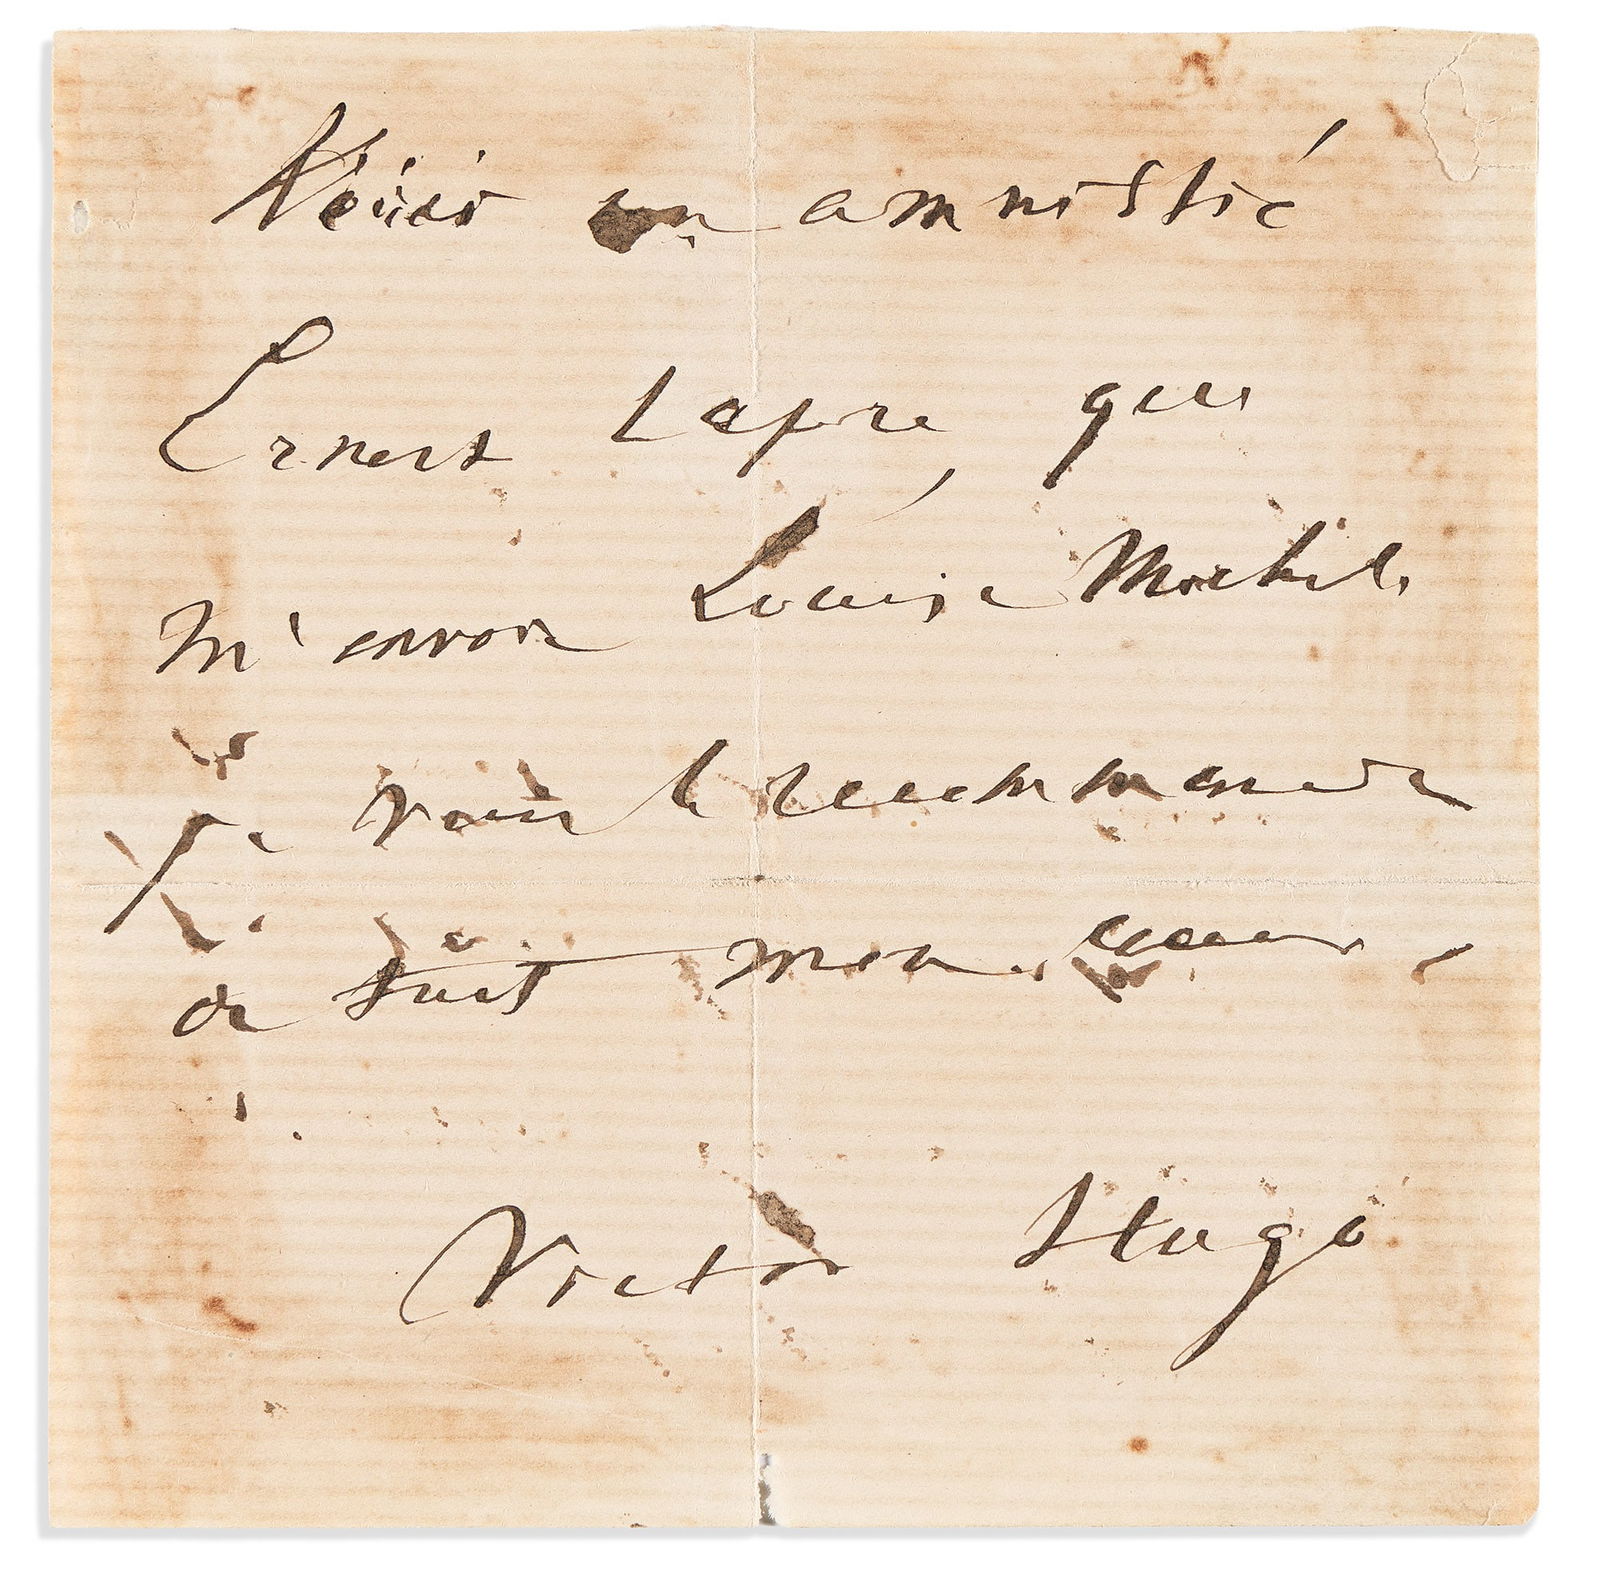 Voici un amnistié
Ernest Lapre que
m'envoie Louise Michel.
Je vous le recommande
de tout mon cœur,
Victor Hugo